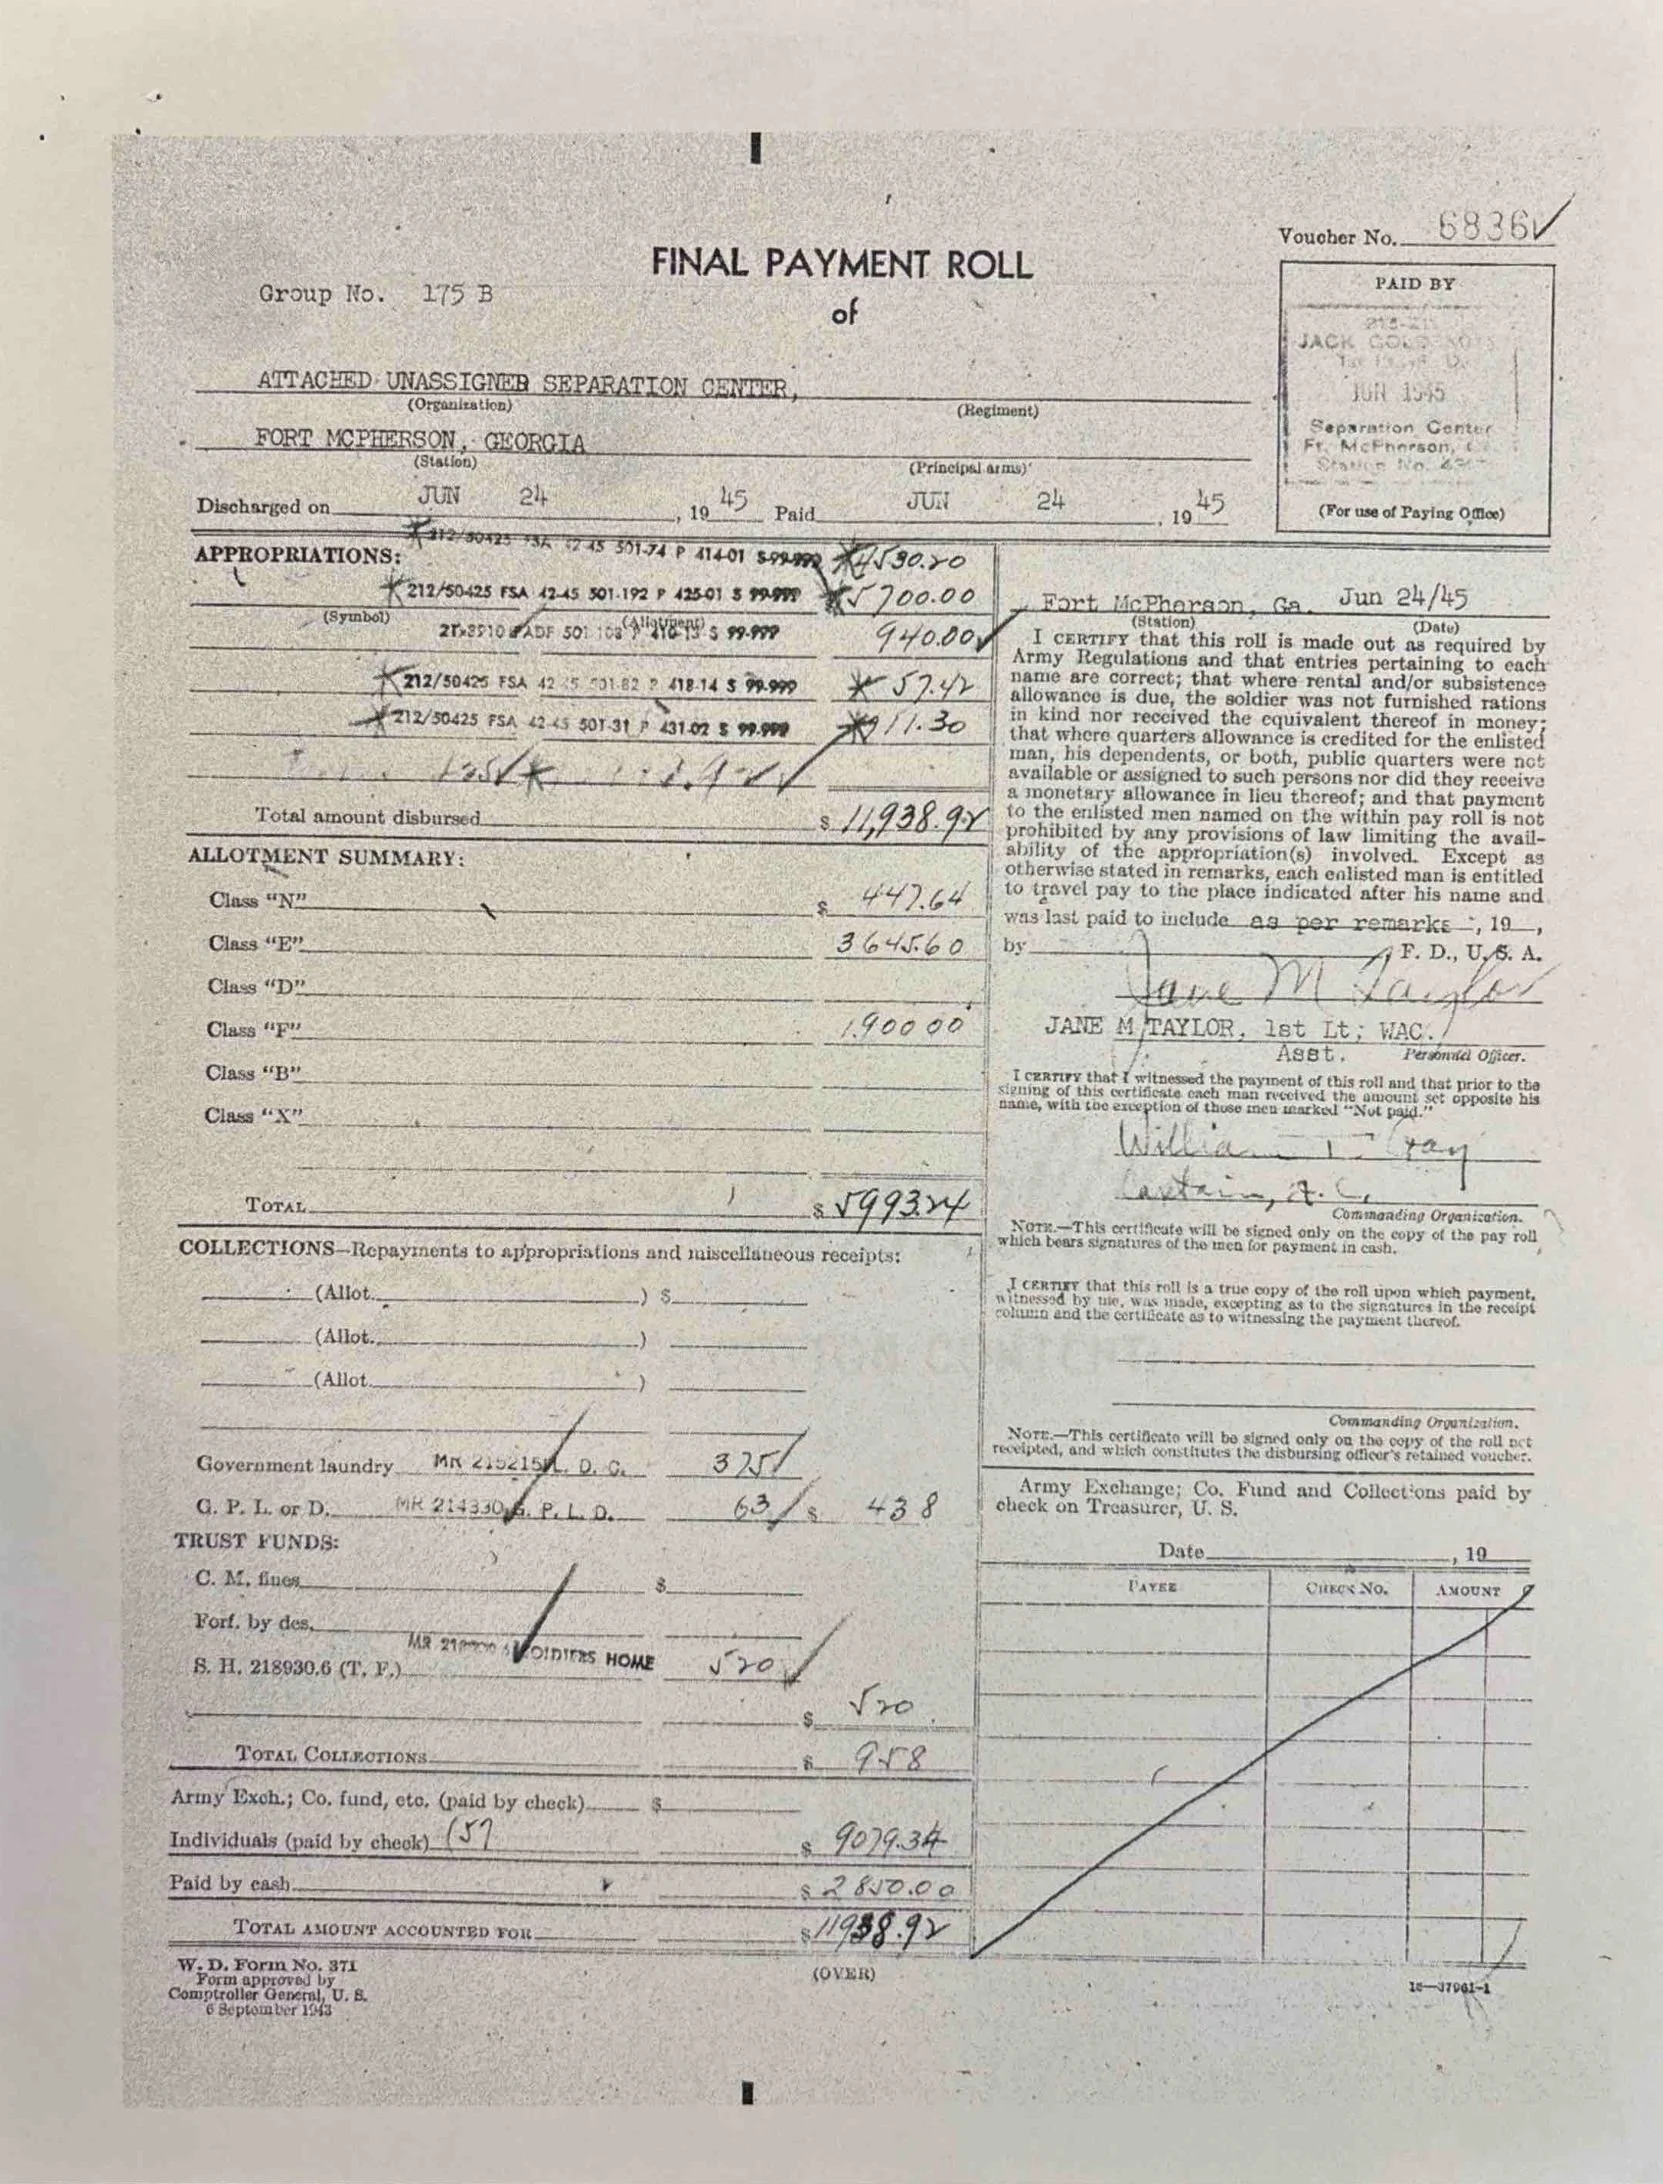 Voucher No. 6836
FINAL PAYMENT ROLL
of
Group No. 175 B
PAID BY
JACK
JUN 1945
Separation Center
Ft. McPherson,
Station No.
(For use of Paying Office)
ATTACHED UNASSIGNED SEPARATION CENTER,
(Organization) (Regiment)
FORT MCPHERSON, GEORGIA
(Station) (Principal arms)
Discharged on JUN 24, 1945 Paid JUN 24, 1945
APPROPRIATIONS: 212/50425 FSA 42-45 501-74 P 414-01 S 99-999 4530.20
212/50425 FSA 42-45 501-192 P 425-01 S 99-999 5700.00
(Symbol) (Allotment)
501 S 99-999 940.00
212/50425 FSA 42-45 501-82 P 418-14 S 99-999 57.42
212/50425 FSA 42-45 501-31 P 431-02 S 99-999 711.30
Total amount disbursed $ 11,938.92
ALLOTMENT SUMMARY:
Class "N" $ 447.64
Class "E" 3645.60
Class "D"
Class "F" 1,900 00
Class "B"
Class "X"
TOTAL $ 5993.24
COLLECTIONS—Repayments to appropriations and miscellaneous receipts:
(Allot. ) $
(Allot. )
(Allot. )
Government laundry MR 215215 L. D. C. 375
G. P. L. or D. MR 214330 G. P. L. D. 63 $ 438
TRUST FUNDS:
C. M. fines $
Forf. by des.
S. H. 218930.6 (T. F.) MR SOLDIERS HOME 520
$ 520
TOTAL COLLECTIONS $ 958
Army Exch.; Co. fund, etc. (paid by check) $
Individuals (paid by check) (57 $ 9079.34
Paid by cash $ 2850.00
TOTAL AMOUNT ACCOUNTED FOR $ 11938.92
W. D. Form No. 371
Form approved by
Comptroller General, U. S.
6 September 1943
(OVER)
Fort McPherson, Ga. Jun 24/45
(Station) (Date)
I CERTIFY that this roll is made out as required by
Army Regulations and that entries pertaining to each
name are correct; that where rental and/or subsistence
allowance is due, the soldier was not furnished rations
in kind nor received the equivalent thereof in money;
that where quarters allowance is credited for the enlisted
man, his dependents, or both, public quarters were not
available or assigned to such persons nor did they receive
a monetary allowance in lieu thereof; and that payment
to the enlisted men named on the within pay roll is not
prohibited by any provisions of law limiting the avail-
ability of the appropriation(s) involved. Except as
otherwise stated in remarks, each enlisted man is entitled
to travel pay to the place indicated after his name and
was last paid to include as per remarks, 19 ,
by F. D., U. S. A.
Jane M Taylor
JANE M TAYLOR, 1st Lt; WAC.
Asst. Personnel Officer.
I CERTIFY that I witnessed the payment of this roll and that prior to the
signing of this certificate each man received the amount set opposite his
name, with the exception of those men marked "Not paid."
William
Captain,
Commanding Organization.
NOTE.—This certificate will be signed only on the copy of the pay roll
which bears signatures of the men for payment in cash.
I CERTIFY that this roll is a true copy of the roll upon which payment,
witnessed by me, was made, excepting as to the signatures in the receipt
column and the certificate as to witnessing the payment thereof.
Commanding Organization.
NOTE.—This certificate will be signed only on the copy of the roll not
receipted, and which constitutes the disbursing officer's retained voucher.
Army Exchange; Co. Fund and Collections paid by
check on Treasurer, U. S.
Date , 19
PAYEE CHECK NO. AMOUNT
16—37961-1